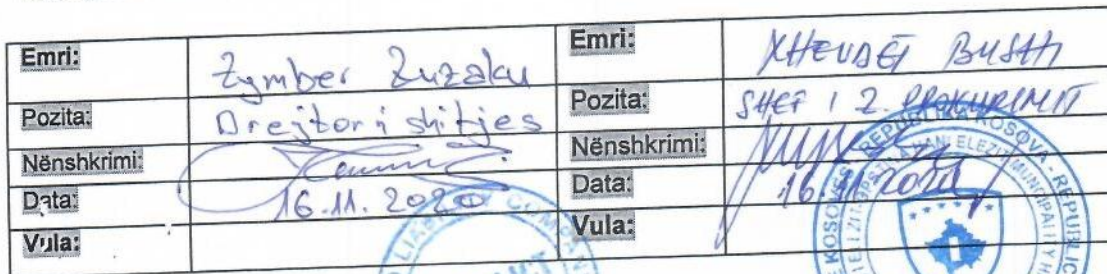 Emri: Zymber Zuzaku Emri: XHEVDET BUSHI
Pozita: Drejtori shitjes Pozita: SHEF I Z. PROKURIMIT
Nënshkrimi: Nënshkrimi:
Data: 16.11.2020 Data: 16.11.2020
Vula: Vula:
REPUBLIKA KOSOVA - REPUBLIC
HANI ELEZIT MUNICIPALITY